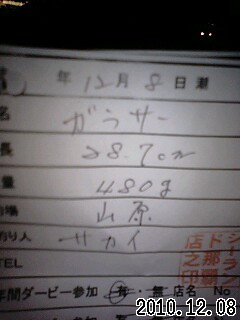 年12月8日潮
名 ガラサー
長 28.7cm
量 480g
場 山原
釣り人 サカイ
TEL
年間ダービー参加 有・無 店名 No
シーランド
那覇
店之印
2010.12.08